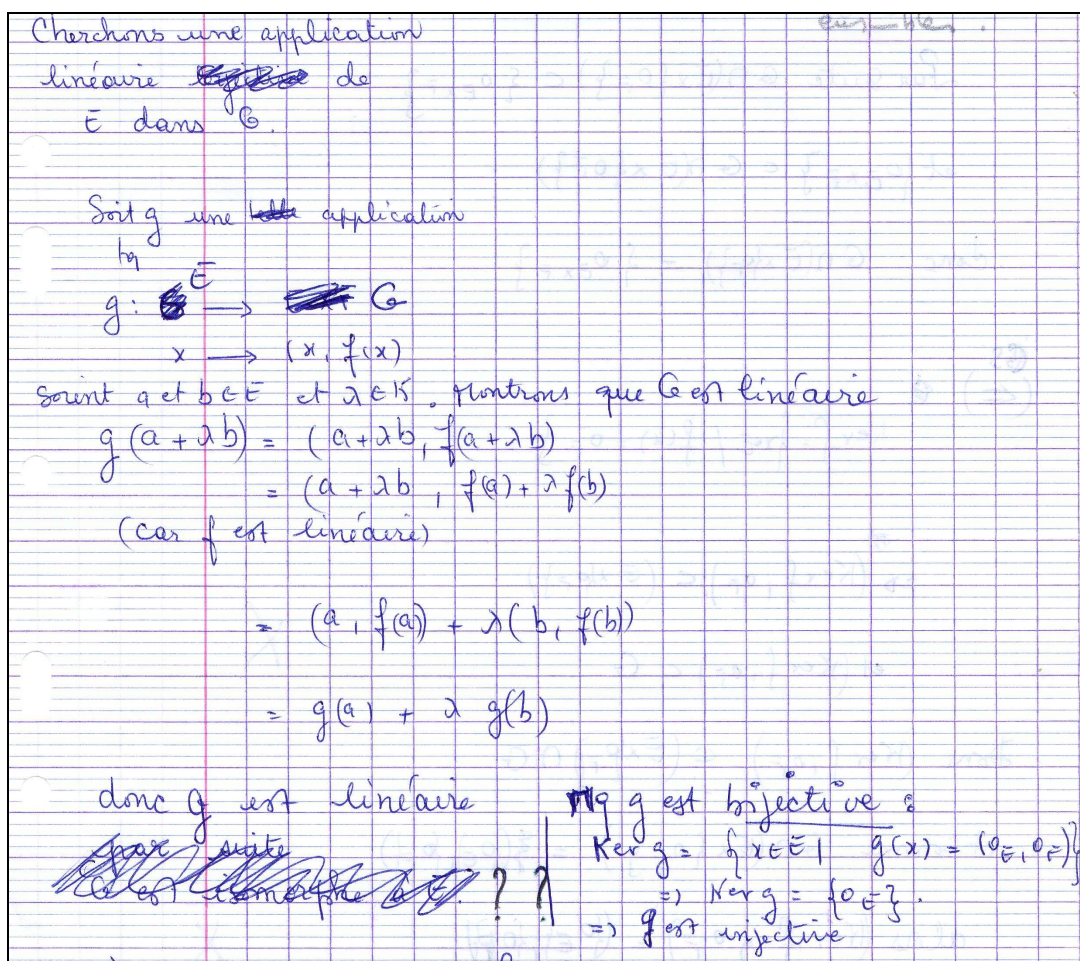 Cherchons une application
linéaire de
E dans G.
Soit g une application
tq
g: E → G
x → (x, f(x)
Soient a et b ∈ E et λ ∈ K. Montrons que G est linéaire
g(a + λb) = (a + λb, f(a + λb)
= (a + λb, f(a) + λ f(b)
(car f est linéaire)
= (a, f(a)) + λ(b, f(b))
= g(a) + λ g(b)
donc g est linéaire
par suite
G est isomorphe à E. ? ?
Mq g est bijective :
Ker g = { x ∈ E | g(x) = (0_E, 0_F)}
=> Ker g = {0_E}.
=> g est injective